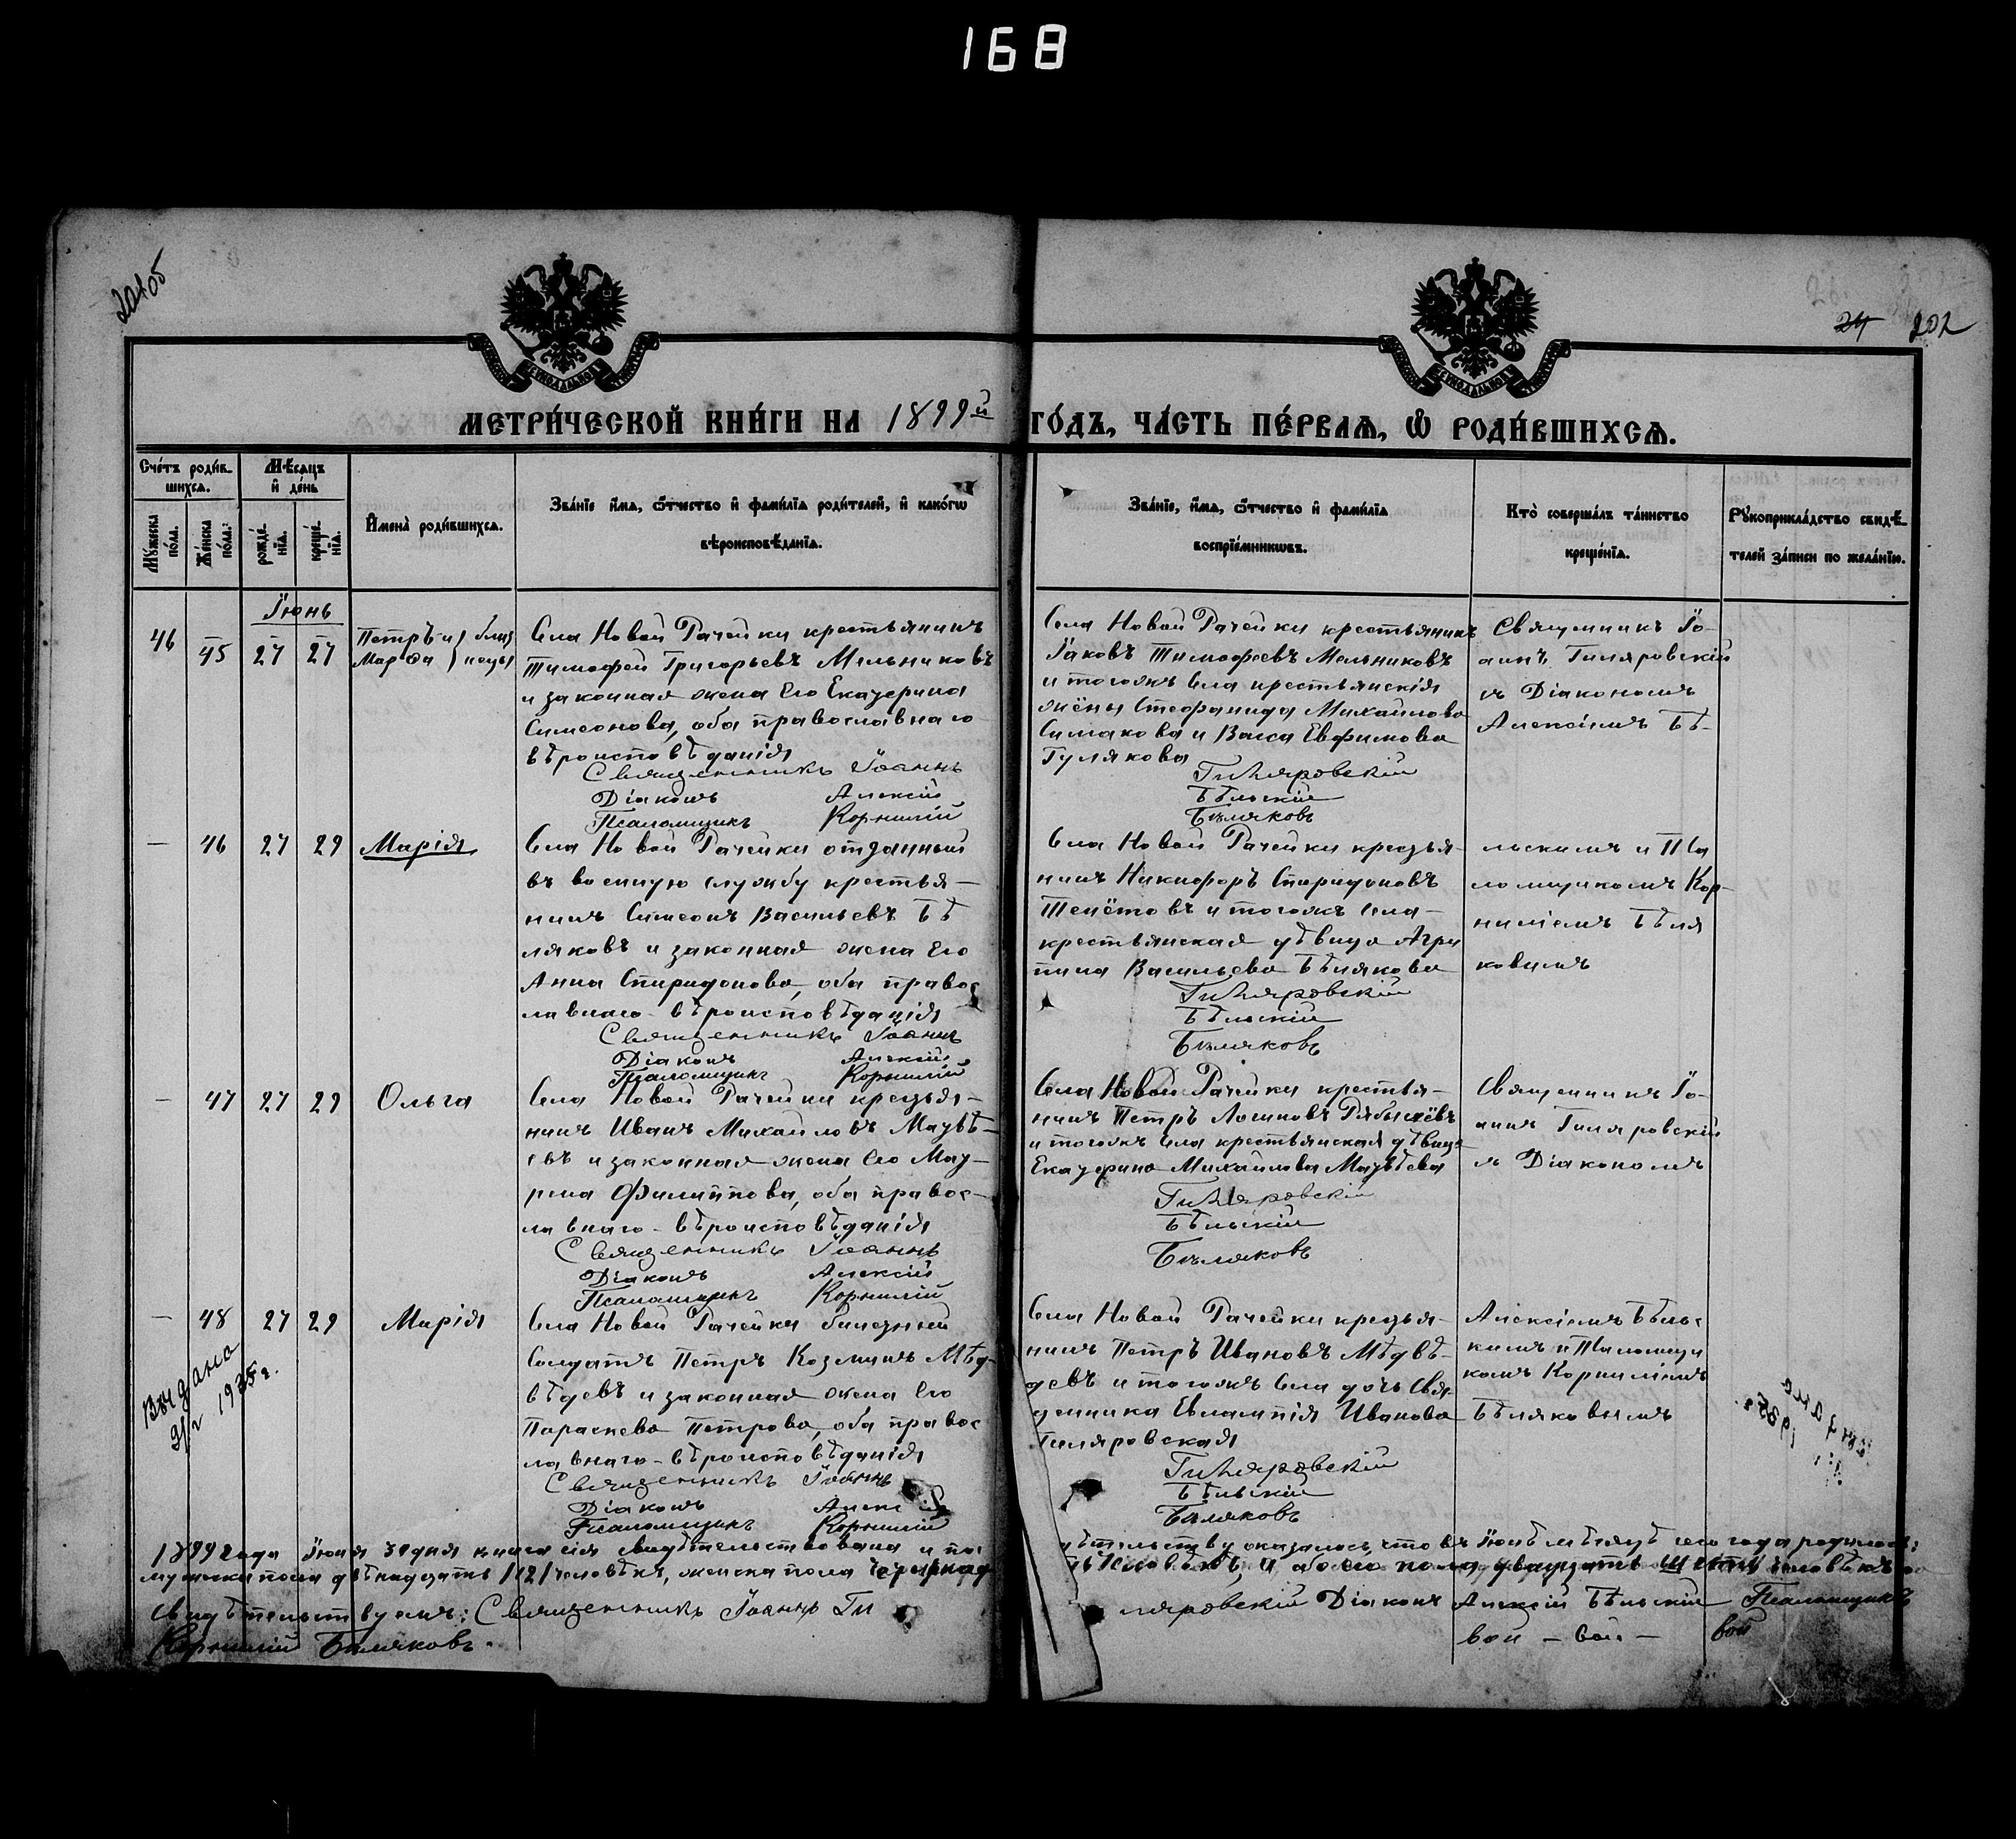 168
201об
24 202
МЕТРИ́ЧЕСКОЙ КНИ́ГИ НА 1899й ГО́ДЪ, ЧА́СТЬ ПЕ́РВАѦ, Ѡ҆ РОДИ́ВШИХСѦ.
Сче́тъ роди́в-
шихсѧ.
Мѣ́сѧцъ
и҆ де́нь
Мꙋ́жеска
по́ла.
Же́нска
по́ла.
рожде́-
нїѧ.
креще́-
нїѧ.
И҆мена̀ роди́вшихсѧ.
Зва́нїе и҆́мѧ, ѻ҆́тчество и҆ фами́лїѧ роди́телей, и҆ како́гѡ
вѣроисповѣ́данїѧ.
Зва́нїе, и҆́мѧ, ѻ҆́тчество и҆ фами́лїѧ
воспрїе́мникѡвъ.
Кто̀ соверша́лъ та́инство
креще́нїѧ.
Рꙋкоприкла́дство свидѣ́-
телей за́писи по жела́нїю.
Іюнь
46 45 27 27 Петръ и } близ
Марѳа } нецы
Села Новой Рачейки крестьянинъ
Тимофей Григорьевъ Мельниковъ
и законная жена его Екатерина
Симеонова, оба православнаго
вѣроисповѣданія
Священникъ Іоаннъ
Діаконъ Алексій
Псаломщикъ Корнилій
Села Новой Рачейки крестьянинъ
Іаковъ Тимофеевъ Мельниковъ
и тогожъ села крестьянскія
жёны Стефанида Михайлова
Симакова и Васса Евфимова
Гулякова
Гиляровскій
Бѣльскій
Бѣляковъ
Священникъ Іо-
аннъ Гиляровскій
съ Діакономъ
Алексіемъ Бѣ-
— 46 27 29 Марія
Села Новой Рачейки отданный
въ военную службу крестья-
нинъ Симеонъ Васильевъ Бѣ
ляковъ и законная жена его
Анна Спиридонова, оба правос
лавнаго вѣроисповѣданія
Священникъ Іоаннъ
Діаконъ Алексій
Псаломщикъ Корнилій
Села Новой Рачейки крестья-
нинъ Никифоръ Спиридоновъ
Тенётовъ и тогожъ села
крестьянская дѣвица Агри
пина Васильева Бѣлякова
Гиляровскій
Бѣльскій
Бѣляковъ
льскимъ и Пса
ломщикомъ Кор-
ниліемъ Бѣля
ковымъ
— 47 27 29 Ольга
Села Новой Рачейки крестья-
нинъ Иванъ Михайловъ Матвѣ-
евъ и законная жена его Мат-
рена Филиппова, оба правос-
лавнаго вѣроисповѣданія
Священникъ Іоаннъ
Діаконъ Алексій
Псаломщикъ Корнилій
Села Новой Рачейки крестья-
нинъ Петръ Логиновъ
и тогожъ села крестьянская дѣвица
Екатерина Михайлова Матвѣева
Гиляровскій
Бѣльскій
Бѣляковъ
Священникъ Іо-
аннъ Гиляровскій
съ Діакономъ
— 48 27 29 Марія
Села Новой Рачейки билетный
солдатъ Петръ Козминъ Мѣд-
вѣдевъ и законная жена его
Параскева Петрова, оба правос
лавнаго вѣроисповѣданія
Священникъ Іоаннъ
Діаконъ Алекс
Псаломщикъ Корнилій
Села Новой Рачейки крестья-
нинъ Петръ Ивановъ Мѣдвѣ-
девъ и тогожъ села дочь свя-
щенника Евлампія Иванова
Гиляровская
Гиляровскій
Бѣльскій
Бѣляковъ
Алексіемъ Бѣльс
кимъ и Псаломщи
комъ Корниліемъ
Бѣляковымъ
Выдано
1935 г.
1899 года Іюня 30 дня книга сія свидѣтельствована и по
ѣтельству оказалось, что въ Іюнѣ мѣсяцѣ сего года родилось:
мужска пола двѣнадцать /12/ человѣкъ, женска пола четырнад
человѣкъ, а обоего пола двадцать шесть человѣкъ
Свидѣтельствуемъ: Священникъ Іоаннъ Ги ляровскій Діаконъ Алексій Бѣльскій Псаломщикъ
Корнилій Бѣляковъ.